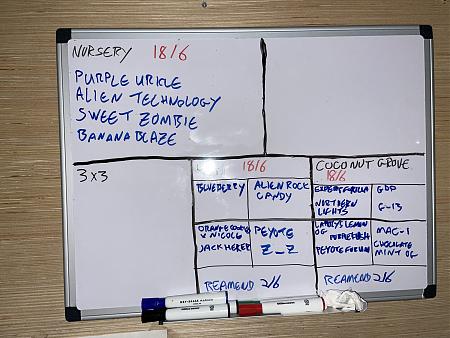 NURSERY 18/6
PURPLE URKLE
ALIEN TECHNOLOGY
SWEET ZOMBIE
BANANA BLAZE
3x3
18/6
BLUEBERRY
ALIEN ROCK
CANDY
ORANGE
X NICOLE
JACK HERER
PEYOTE
Z_Z
REAMEND 2/6
COCONUT GROVE
18/6
NORTHERN
LIGHTS
GDP
G-13
LEMON
OG
PEYOTE
MAC-1
CHOCOLATE
MINT OG
REAMEND 2/6